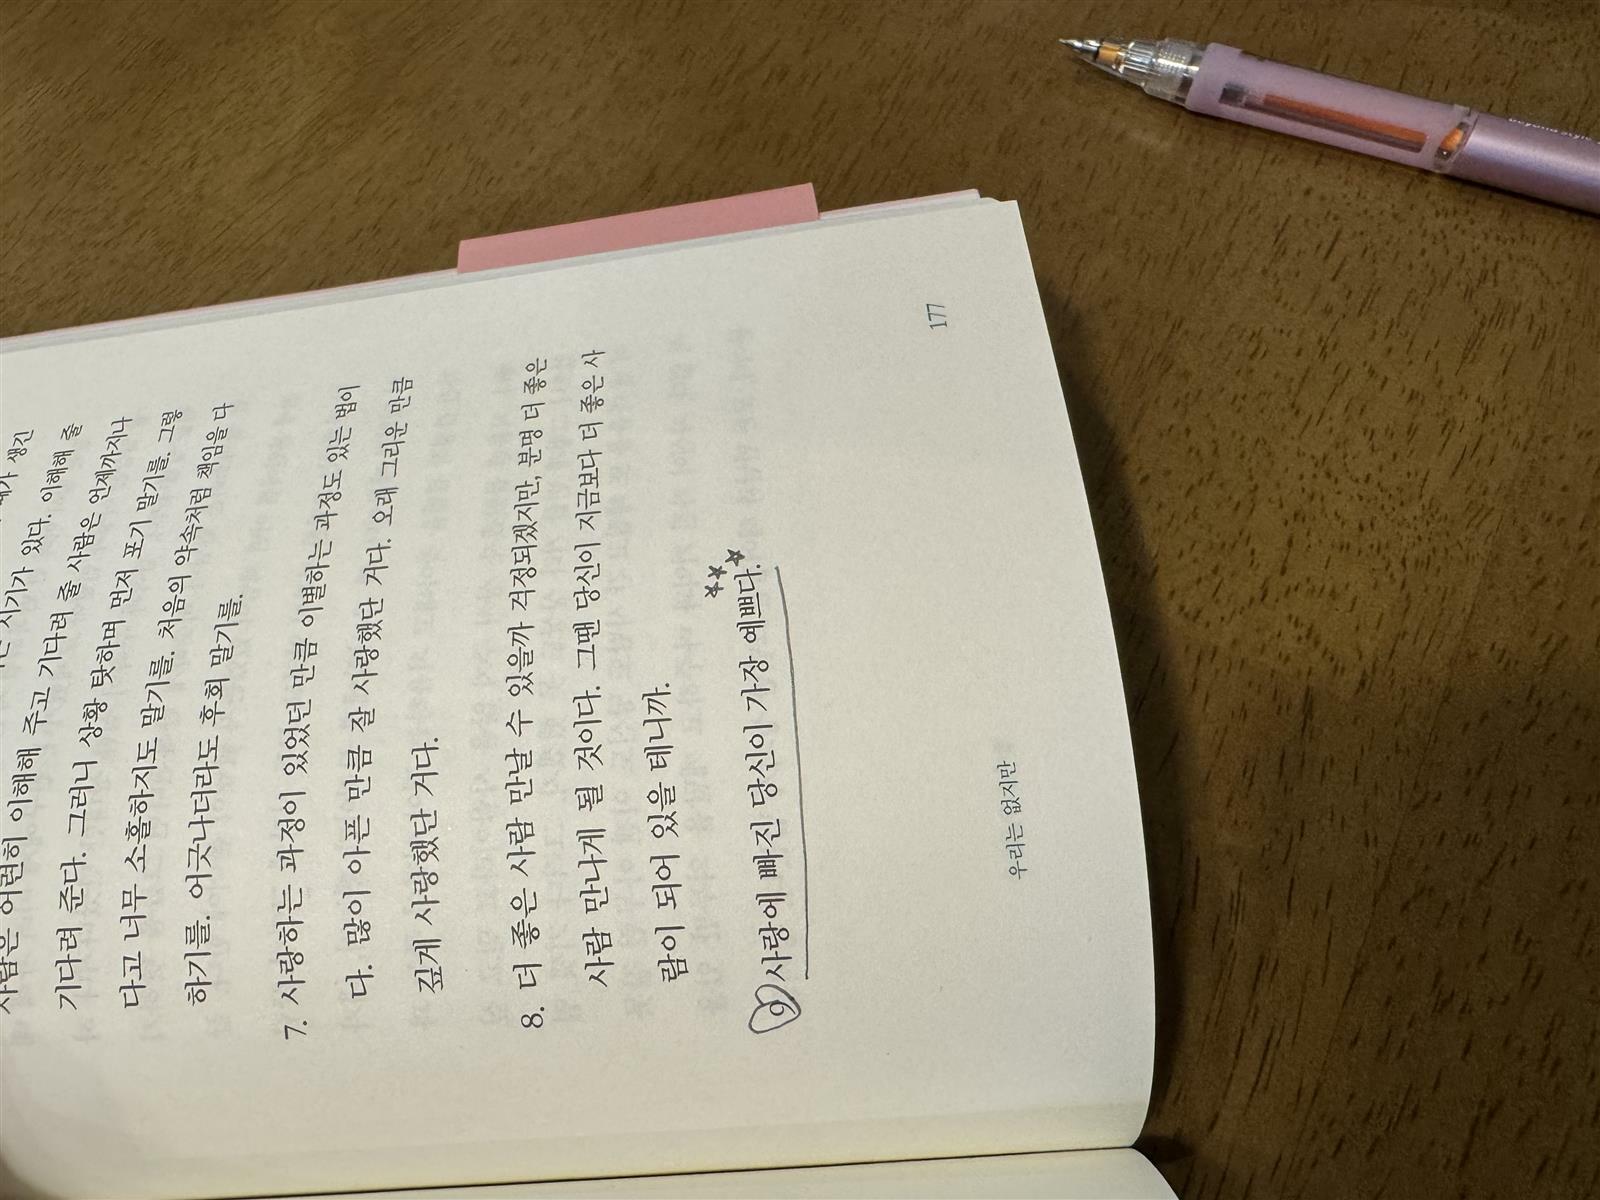 때가 생긴
사람은 어련히 이해해 주고 기다려 줄 시기가 있다. 이해해 줄
기다려 준다. 그러니 상황 탓하며 먼저 포기 말기를. 그렇
다고 너무 소홀하지도 말기를. 처음의 약속처럼 책임을 다
하기를. 어긋나더라도 후회 말기를.
7. 사랑하는 과정이 있었던 만큼 이별하는 과정도 있는 법이
다. 많이 아픈 만큼 잘 사랑했단 거다. 오래 그리운 만큼
깊게 사랑했단 거다.
8. 더 좋은 사람 만날 수 있을까 걱정되겠지만, 분명 더 좋은
사람 만나게 될 것이다. 그땐 당신이 지금보다 더 좋은 사
람이 되어 있을 테니까.
9. 사랑에 빠진 당신이 가장 예쁘다.
우리는 없지만
177